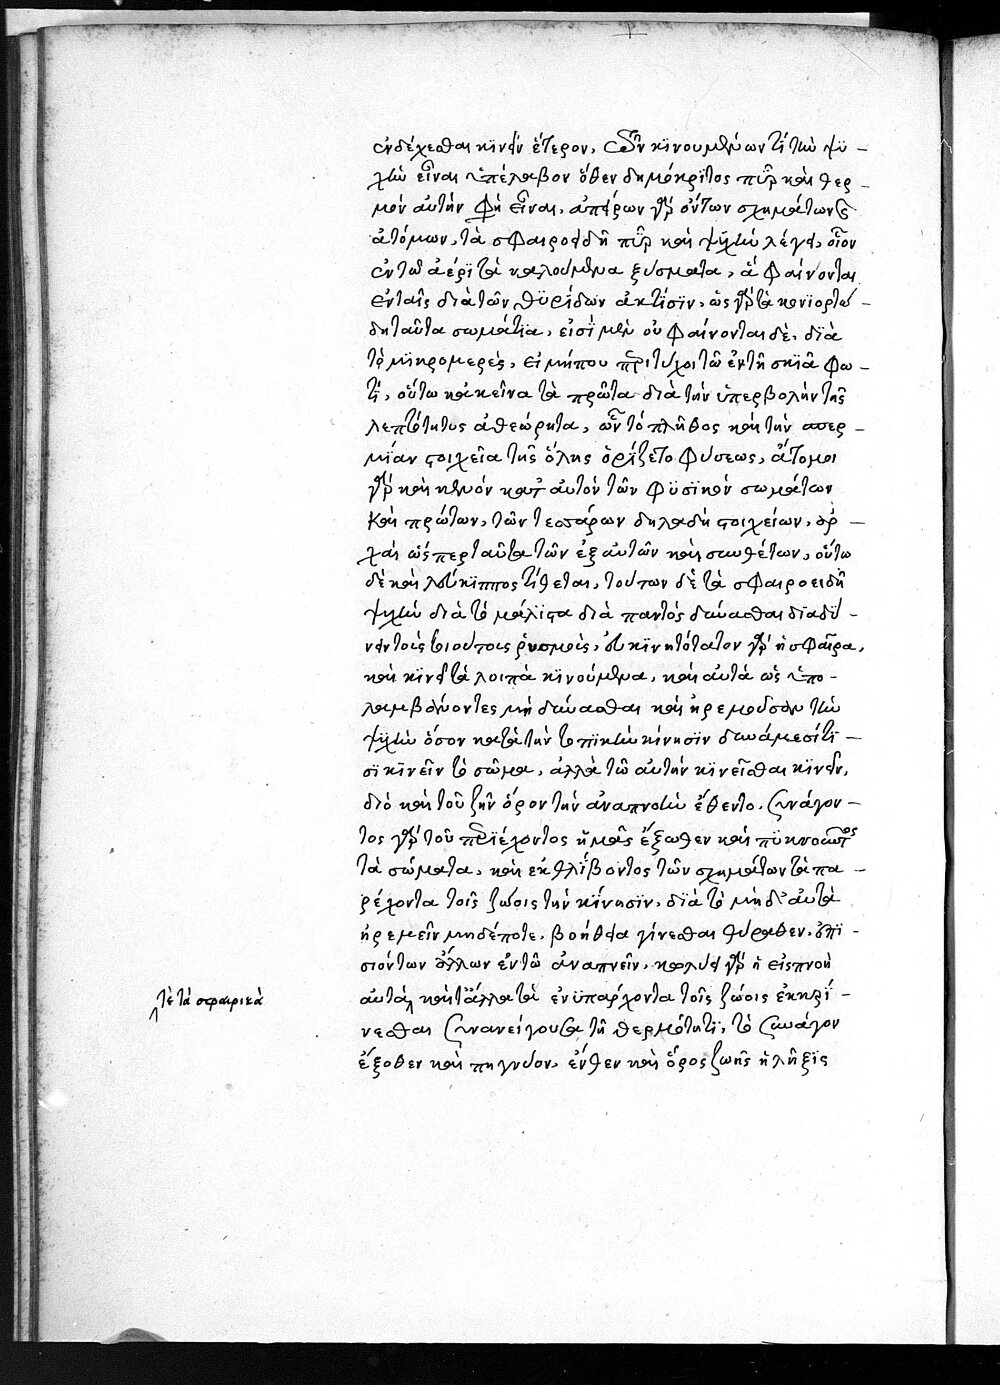 ἐνδέχεσθαι κινεῖν ἕτερον, τῶν κινουμένων τί τὴν ψυ-
χὴν εἶναι ὑπέλαβον ὅθεν δημόκριτος πῦρ καὶ θερ-
μὸν αὐτήν φη εἶναι, ἀπείρων γὰρ ὄντων σχημάτων
ἀτόμων, τὰ σφαιροειδῆ πῦρ καὶ ψυχὴν λέγει, οἷον
ἐν τῶ ἀέρι τὰ καλούμενα ξύσματα, ἃ φαίνονται
ἐν ταῖς διὰ τῶν θυρίδων ἀκτίσιν, ὡς γὰρ τὰ κονιορτώ-
δη ταῦτα σωμάτια, εἰσὶ μὲν οὐ φαίνονται δὲ, διὰ
τὸ μικρομερὲς, εἰ μήπου περιτύχοι τῶ ἐν τῆ σκιᾶ φω-
τί, οὕτω κἀκεῖνα τὰ πρῶτα διὰ τὴν ὑπερβολὴν τῆς
λεπτότητος ἀθεώρητα, ὧν τὸ πλῆθος καὶ τὴν ασπερ-
μίαν στοιχεῖα τῆς ὅλης ὁρίζετο φύσεως, ἄτομοι
γὰρ καὶ κενὸν κατ αὐτὸν τῶν φυσικῶν σωμάτων
καὶ πρώτων, τῶν τεσσάρων δηλαδὴ στοιχείων, ἀρ-
χαὶ ὥσπερ ταῦτα τῶν ἐξ αὐτῶν καὶ συνθέτων, οὕτω
δὲ καὶ λεύκιππος τίθεται, τούτων δὲ τὰ σφαιροειδῆ
ψυχὴν διὰ τὸ μάλιστα διὰ παντὸς δύνασθαι διαδύ-
νειν τοὺς τοιούτους ῥυσμοὺς, εὐκινητότατον γὰρ ἡ σφαῖρα,
καὶ κινεῖ τὰ λοιπὰ κινούμενα, καὶ αὐτὰ ὡς ὑπο-
λαμβάνοντες μὴ δύνασθαι καὶ ἠρεμοῦσαν τὴν
ψυχὴν ὅσον κατὰ τὴν τοπικὴν κίνησιν δυνάμεσί τι-
σι κινεῖν τὸ σῶμα, ἀλλὰ τῶ αὐτὴν κινεῖσθαι κινεῖν,
διὸ καὶ τοῦ ζῆν ὅρον τὴν ἀναπνοὴν ἔθεντο. συνάγον-
τος γὰρ τοῦ περιέχοντος ἡμᾶς ἔξωθεν καὶ πυκνοῦντος
τὰ σώματα, καὶ ἐκθλίβοντος τῶν σχημάτων τὰ πα-
ρέχοντα τοῖς ζώοις τὴν κίνησιν, διὰ τὸ μηδ αὐτὰ
ἠρεμεῖν μηδέποτε, βοήθεια γίνεσθαι θύραθεν, ἐπι-
σιόντων ἄλλων ἐν τῶ ἀναπνεῖν, κωλύει γὰρ ἡ εἰσπνοὴ
αὐτά, καὶ τἆλλα τὰ ἐνυπάρχοντα τοῖς ζώοις ἐκκρί-
νεσθαι συνανείργουσα τῆ θερμότητι, τὸ συνάγον
ἔξοθεν καὶ πηγνύον, ἔνθεν καὶ ὅρος ζωῆς ἡ λῆξις
τε τὰ σφαιρικὰ